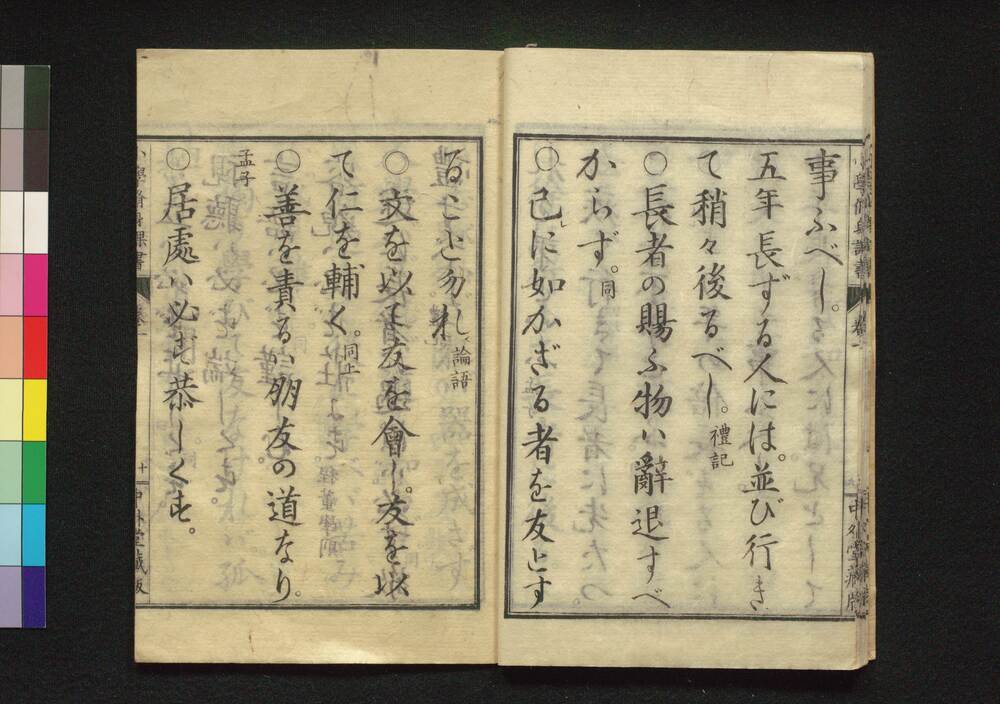 事ふべし。
五年長ずる人には。並び行き
て稍々後るべし。禮記
○長者の賜ふ物ハ辭退すべ
からず。同
○己に如かざる者を友とす
ることゝ勿れ。論語
○文を以て友を會し。友を以
て仁を輔く。同上
○善を責るハ朋友の道なり。
孟子
○居處ハ必ず恭しくす。
小學修身課書 卷一
十 中外堂藏版